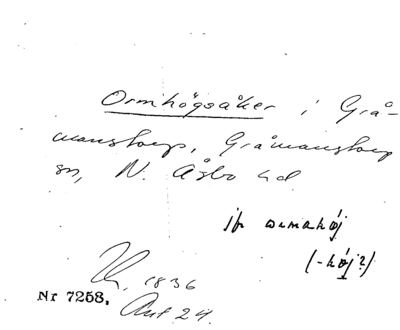 Ormhögsåker i Grå-
manstorp, Gråmanstorp
sn, N. Åsbo hd
jfr ormahöj
(-höj?)
1836
Nr 7258. Aut 24